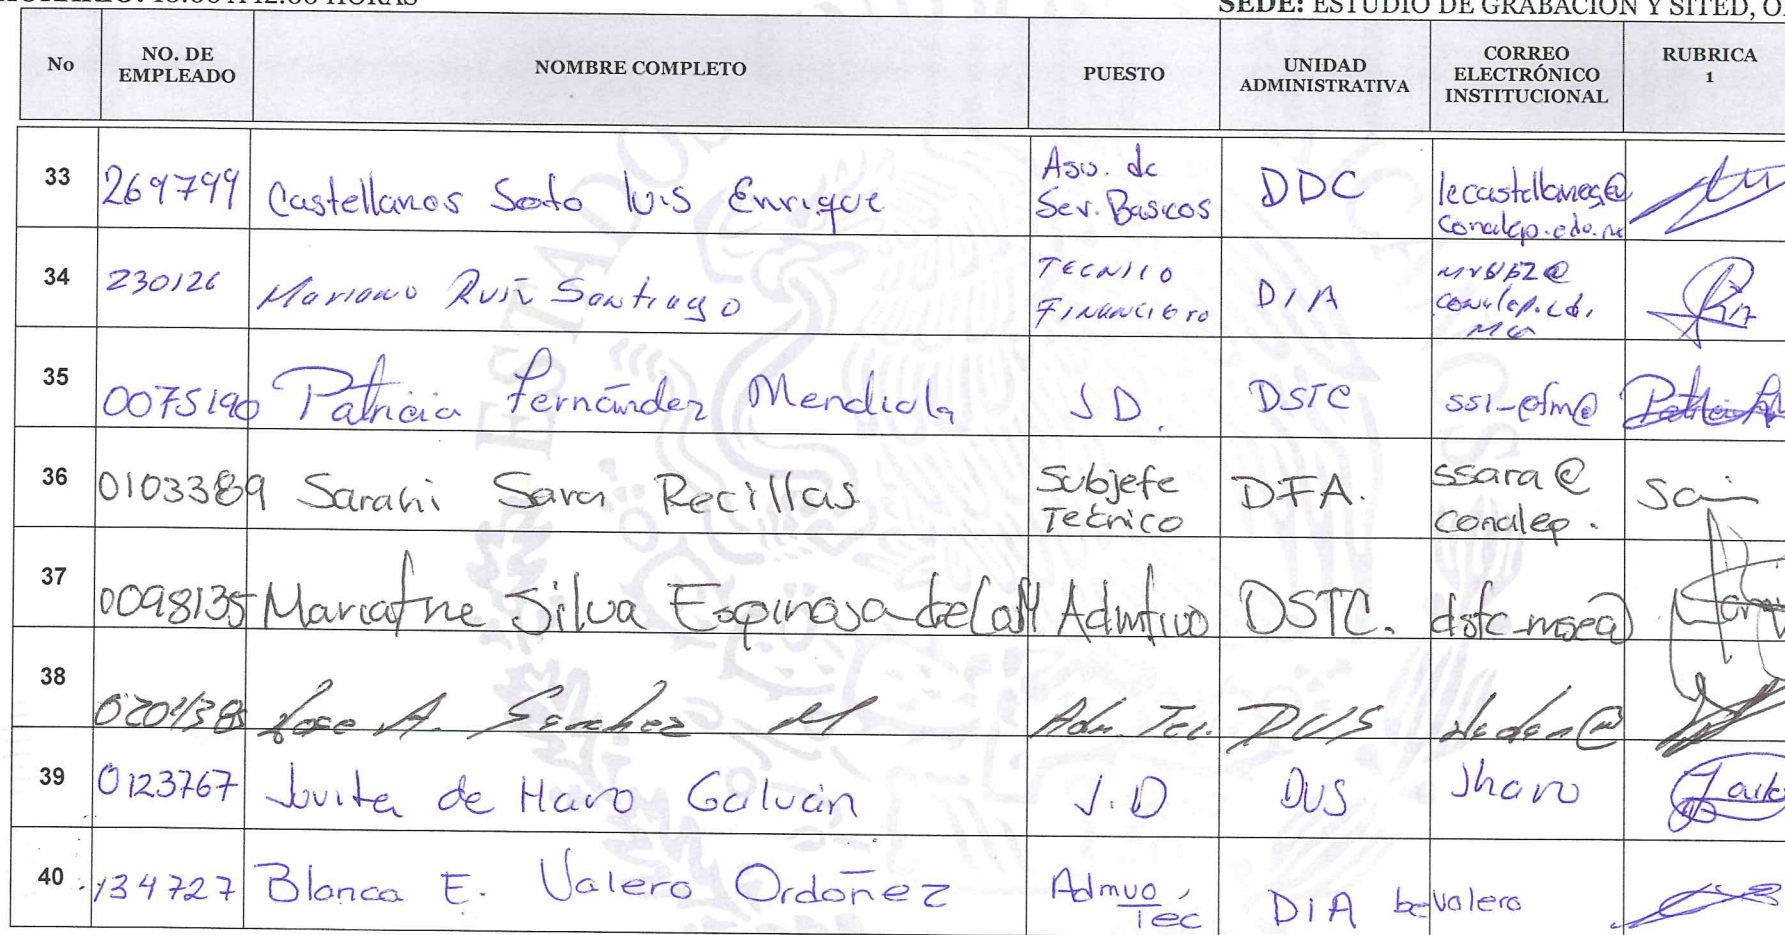 10:00 A 12:00 HORAS
SEDE: ESTUDIO DE GRABACIÓN Y SITED,
No NO. DE EMPLEADO NOMBRE COMPLETO PUESTO UNIDAD ADMINISTRATIVA CORREO ELECTRÓNICO INSTITUCIONAL RUBRICA 1
33 269799 Castellanos Soto luis Enrique Asis. de Ser. Basicos DDC lecastellanos@ conalep.edu.
34 230126 Mariano Ruiz Santiago TECNICO FINANCIERO DIA
35 0075190 Patricia Fernández Mendiola J D. DSTC ssi-pfm@
36 0103389 Sarahi Sara Recillas Subjefe Tecnico DFA. ssara@ conalep.
37 0098135 Silva Espinosa DSTC.
38 Jose A. Sanchez M Adm. Tec. DUS
39 0123767 Jovita de Haro Galván J.D DUS Jharo
40 134727 Blanca E. Valero Ordoñez Admvo Tec DIA bevalero
ESTADOS